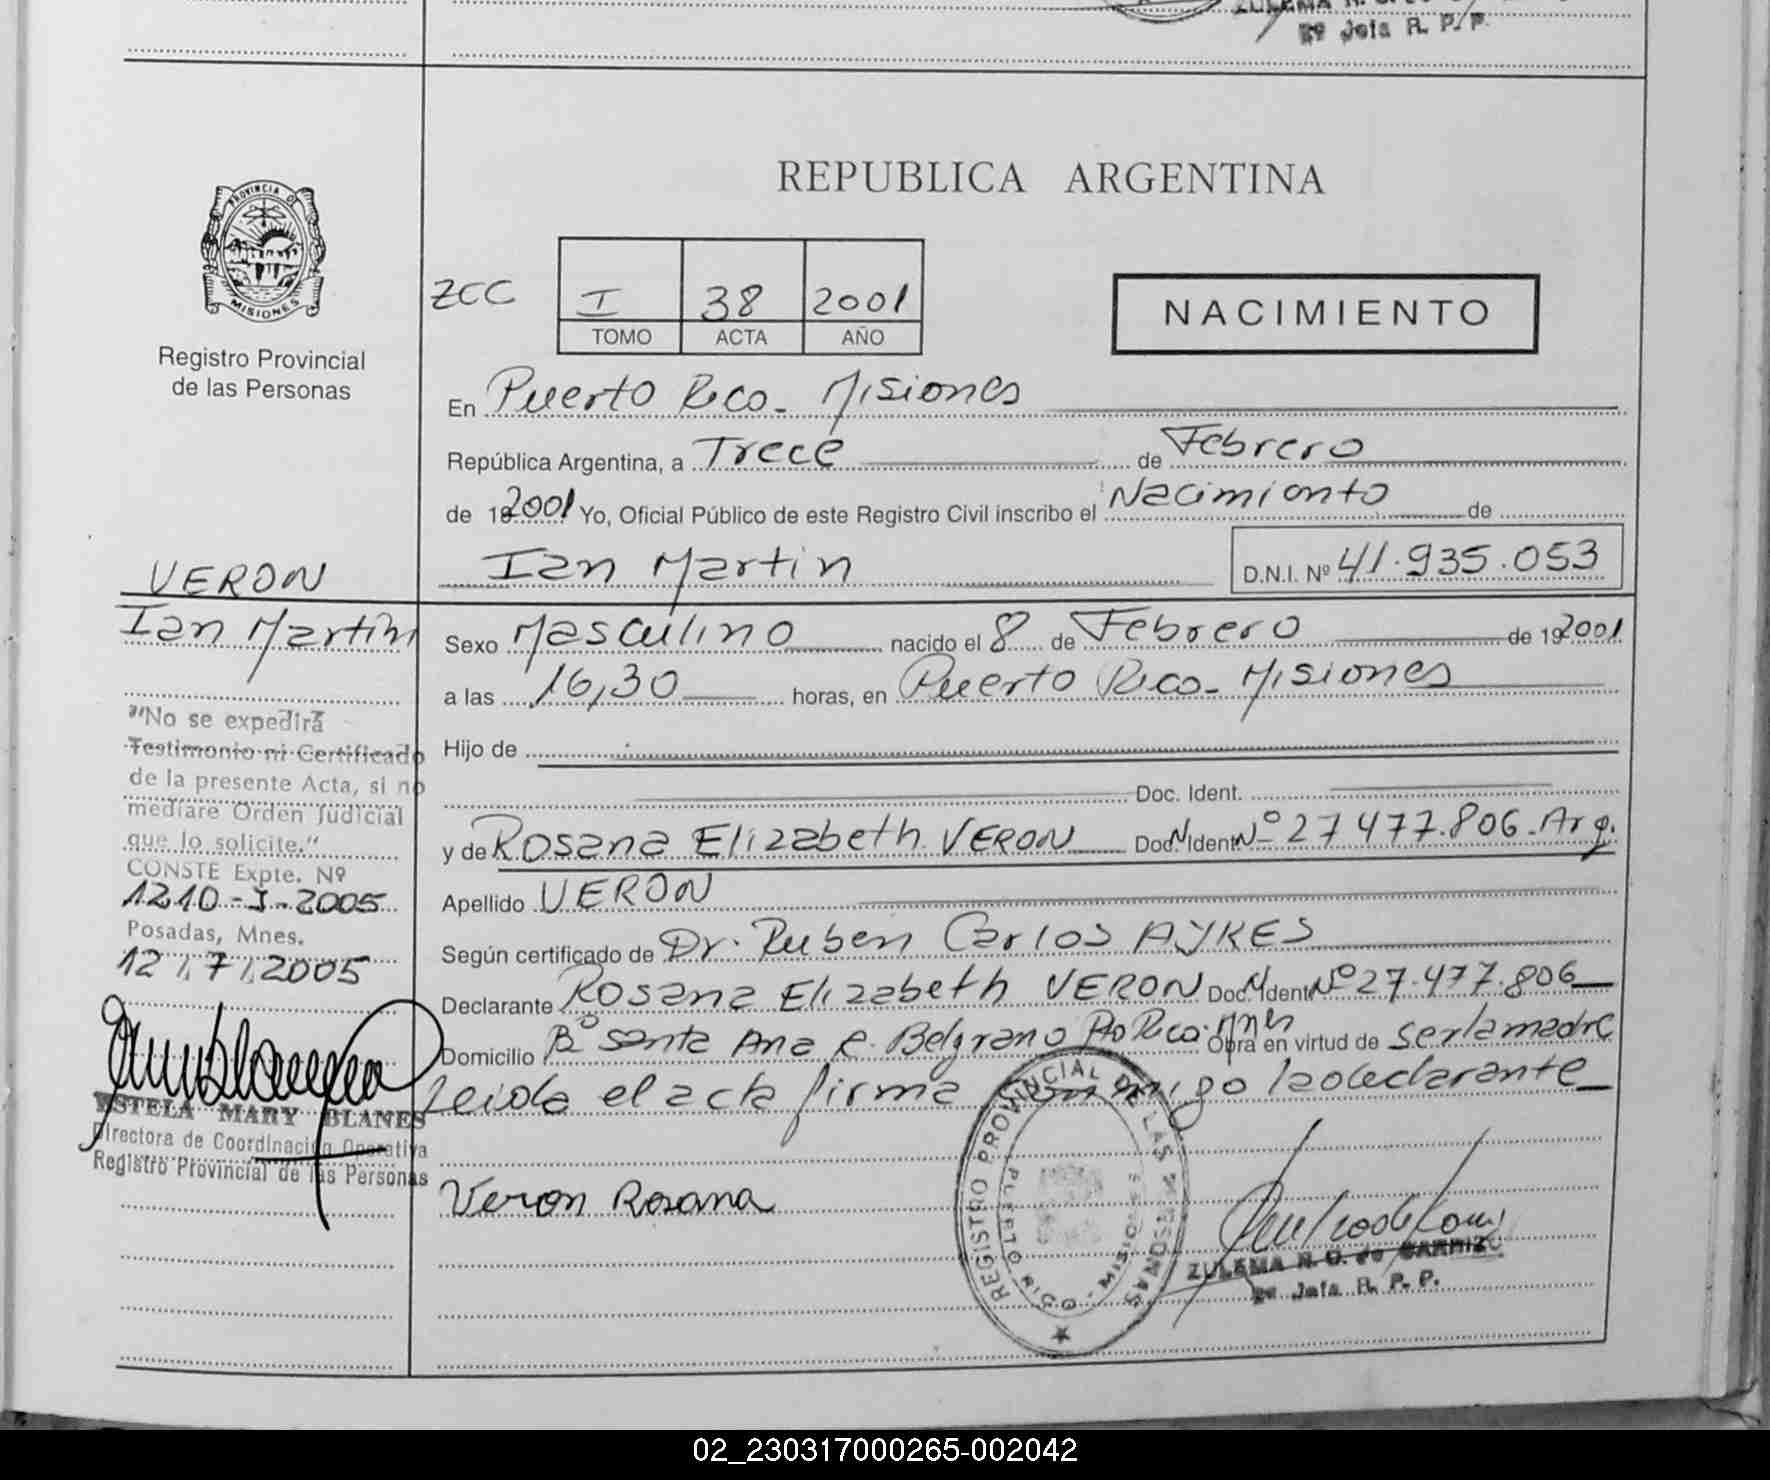 2º Jefa R. P. P.
REPUBLICA ARGENTINA
PROVINCIA DE
MISIONES
Registro Provincial
de las Personas
ZCC
I 38 2001
TOMO ACTA AÑO
NACIMIENTO
En Puerto Rico - Misiones
República Argentina, a Trece de Febrero
de 19 2001 Yo, Oficial Público de este Registro Civil inscribo el Nacimiento de
Ian Martin D.N.I. Nº 41.935.053
VERON
Ian Martin
Sexo Masculino nacido el 8 de Febrero de 19 2001
a las 16,30 horas, en Puerto Rico - Misiones
Hijo de
Doc. Ident.
y de Rosana Elizabeth VERON Doc. Ident. M Nº 27.477.806 - Arg.
Apellido VERON
Según certificado de Dr. Ruben Carlos AYKES
Declarante Rosana Elizabeth VERON Doc. Ident. M Nº 27.477.806
Domicilio Bº Santa Ana R. Belgrano Pto Rico. Mnes Obra en virtud de ser la madre
Leida el acta firma conmigo la declarante
Veron Rosana
"No se expedirá
Testimonio ni Certificado
de la presente Acta, si no
mediare Orden Judicial
que lo solicite."
CONSTE Expte. Nº
1210-I-2005
Posadas, Mnes.
12/7/2005
ESTELA MARY BLANES
Directora de Coordinación Operativa
Registro Provincial de las Personas
REGISTRO PROVINCIAL DE LAS PERSONAS
PUERTO RICO - MISIONES
ZULEMA R. O. de CARRIZO
2º Jefa R. P. P.
02_230317000265-002042